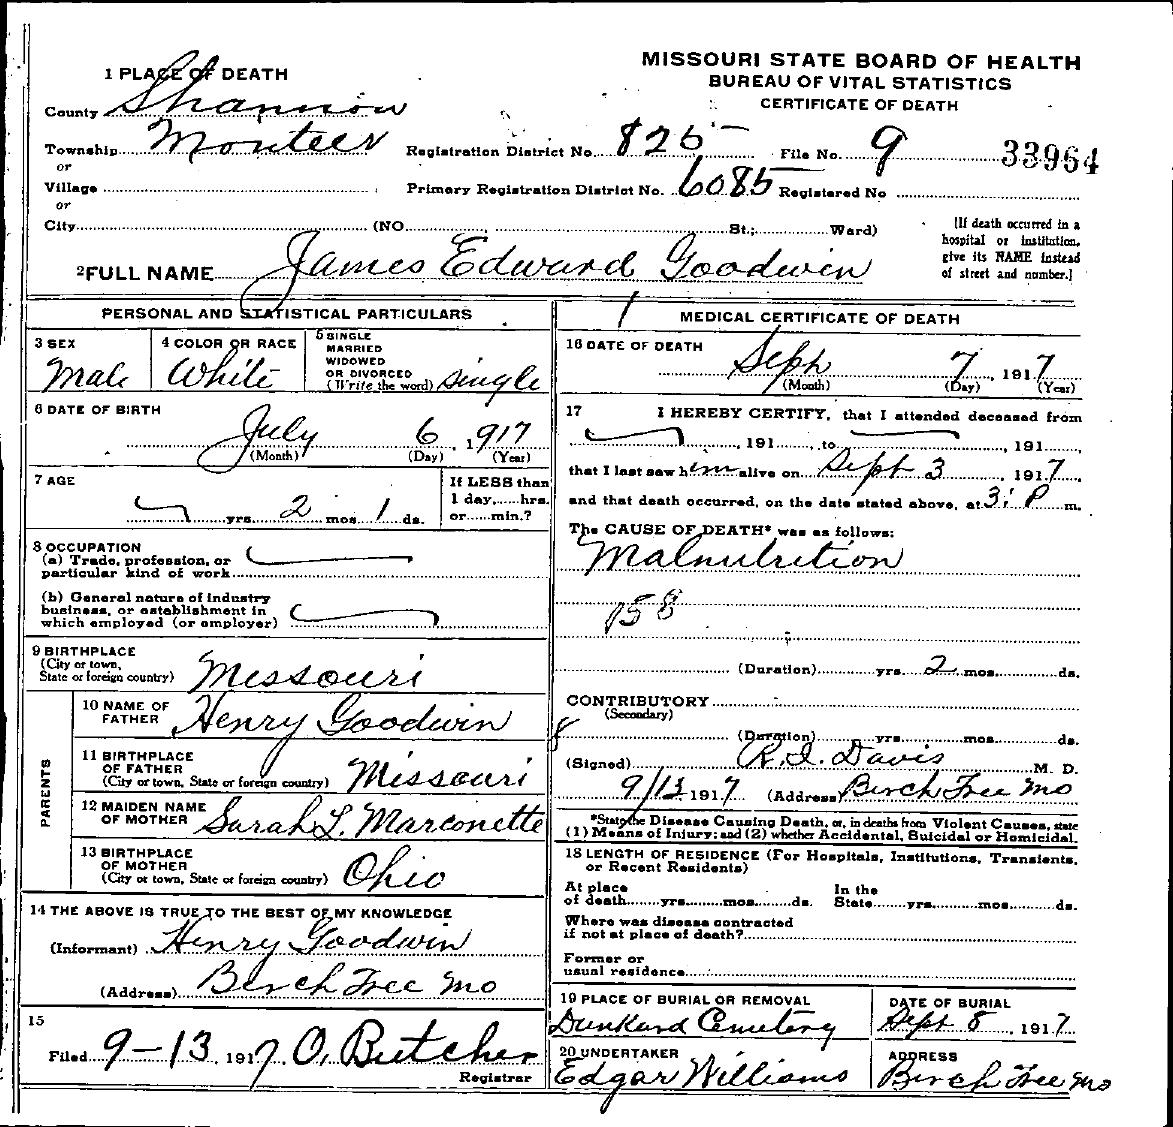 MISSOURI STATE BOARD OF HEALTH
BUREAU OF VITAL STATISTICS
CERTIFICATE OF DEATH
1 PLACE OF DEATH
County Shannon
Township Monteer Registration District No. 825 File No. 9 33964
or
Village Primary Registration District No. 6085 Registered No
or
City (NO. St.; Ward)
[If death occurred in a hospital or institution, give its NAME instead of street and number.]
2 FULL NAME James Edward Goodwin
PERSONAL AND STATISTICAL PARTICULARS
3 SEX
Male
4 COLOR OR RACE
White
5 SINGLE
MARRIED
WIDOWED
OR DIVORCED
(Write the word) single
6 DATE OF BIRTH
July 6, 1917
(Month) (Day) (Year)
7 AGE
yrs. 2 mos. 1 ds.
If LESS than
1 day, hrs.
or min.?
8 OCCUPATION
(a) Trade, profession, or
particular kind of work
(b) General nature of industry
business, or establishment in
which employed (or employer)
9 BIRTHPLACE
(City or town,
State or foreign country) Missouri
PARENTS
10 NAME OF
FATHER Henry Goodwin
11 BIRTHPLACE
OF FATHER
(City or town, State or foreign country) Missouri
12 MAIDEN NAME
OF MOTHER Sarah L. Marconette
13 BIRTHPLACE
OF MOTHER
(City or town, State or foreign country) Ohio
14 THE ABOVE IS TRUE TO THE BEST OF MY KNOWLEDGE
(Informant) Henry Goodwin
(Address) Birch Tree Mo
15
Filed 9-13 1917 O. Butcher
Registrar
MEDICAL CERTIFICATE OF DEATH
16 DATE OF DEATH
Seph 7, 1917
(Month) (Day) (Year)
17 I HEREBY CERTIFY, that I attended deceased from
, 191 , to , 191 ,
that I last saw him alive on Sept 3, 1917,
and that death occurred, on the date stated above, at 3: P m.
The CAUSE OF DEATH* was as follows:
Malnutrition
158
(Duration) yrs. 2 mos. ds.
CONTRIBUTORY
(Secondary)
(Duration) yrs. mos. ds.
(Signed) R. I. Davis M. D.
9/13 1917 (Address) Birch Tree Mo
*State the Disease Causing Death, or, in deaths from Violent Causes, state
(1) Means of Injury; and (2) whether Accidental, Suicidal or Homicidal.
18 LENGTH OF RESIDENCE (For Hospitals, Institutions, Transients,
or Recent Residents)
At place In the
of death yrs. mos. ds. State yrs. mos. ds.
Where was disease contracted
if not at place of death?
Former or
usual residence
19 PLACE OF BURIAL OR REMOVAL
Dunkard Cemetery
DATE OF BURIAL
Sept 8, 1917
20 UNDERTAKER
Edgar Williams
ADDRESS
Birch Tree Mo